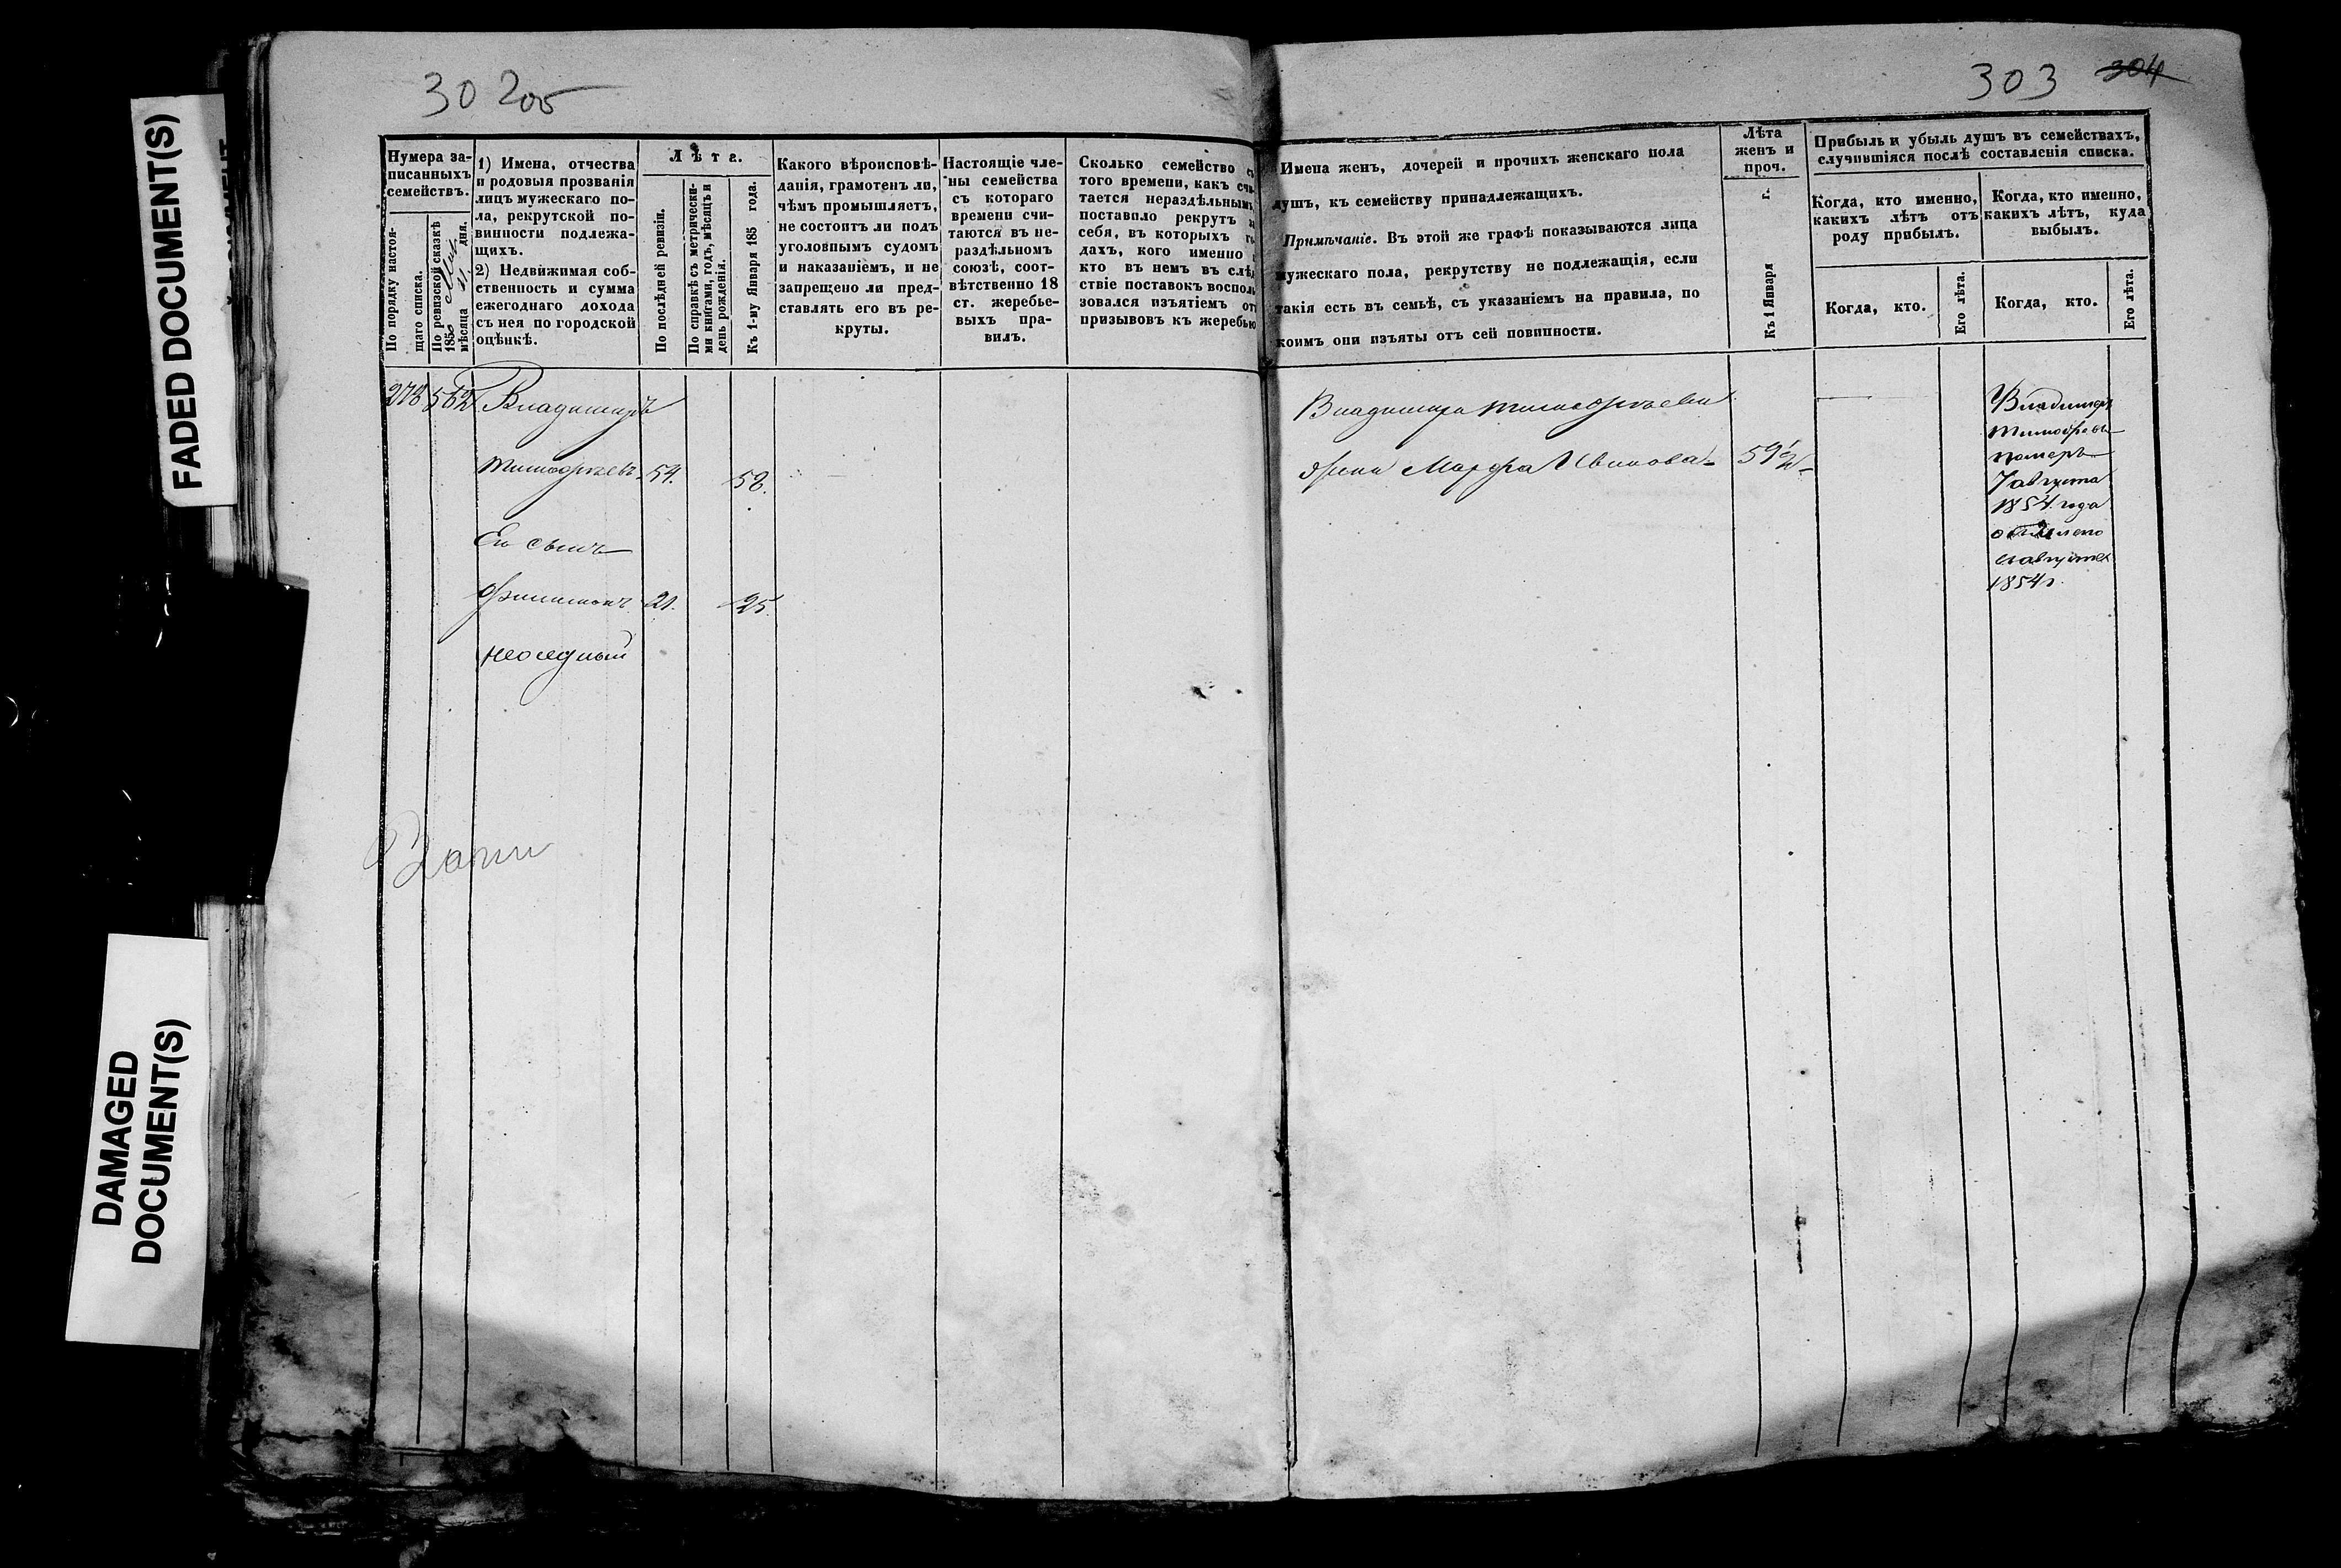 FADED DOCUMENT(S)
DAMAGED
DOCUMENT(S)
30 205
Нумера за-
писанныхъ
семействъ.
По порядку настоя-
щаго списка.
По ревизской сказкѣ
1850
мѣсяца 11. дня.
1) Имена, отчества
и родовыя прозванія
лицъ мужескаго по-
ла, рекрутской по-
винности подлежа-
щихъ.
2) Недвижимая соб-
ственность и сумма
ежегоднаго дохода
съ нея по городской
оцѣнкѣ.
Лѣта.
По послѣдней ревизіи.
По справкѣ съ метрически-
ми книгами, годъ, мѣсяцъ и
день рожденія.
Къ 1-му Января 185 года.
Какого вѣроисповѣ-
данія, грамотенъ ли,
чѣмъ промышляетъ,
не состоитъ ли подъ
уголовнымъ судомъ
и наказаніемъ, и не
запрещено ли пред-
ставлять его въ ре-
круты.
Настоящіе чле-
ны семейства
съ котораго
времени счи-
таются въ не-
раздѣльномъ
союзѣ, соот-
вѣтственно 18
ст. жеребье-
выхъ пра-
вилъ.
Сколько семейство съ
того времени, какъ счи-
тается нераздѣльнымъ,
поставило рекрутъ за
себя, въ которыхъ го-
дахъ, кого именно и
кто въ немъ въ слѣд-
ствіе поставокъ восполь-
зовался изъятіемъ отъ
призывовъ къ жеребью
278 562 Владимиръ
Тимофѣевъ 54. 58.
Его сынъ
Филимонъ 21. 25.
303 304
Имена женъ, дочерей и прочихъ женскаго пола
душъ, къ семейству принадлежащихъ.
Примѣчаніе. Въ этой же графѣ показываются лица
мужескаго пола, рекрутству не подлежащія, если
такія есть въ семьѣ, съ указаніемъ на правила, по
коимъ они изъяты отъ сей повинности.
Лѣта
женъ и
проч.
Къ 1 Января г.
Прибыль и убыль душъ въ семействахъ,
случившіяся послѣ составленія списка.
Когда, кто именно,
какихъ лѣтъ отъ
роду прибылъ.
Когда, кто именно,
какихъ лѣтъ, куда
выбылъ.
Когда, кто.
Его лѣта.
Когда, кто.
Его лѣта.
Владимира Тимофѣева
жена Марфа Иванова 59 1/2
Владимеръ
Тимофеевъ
померъ
7 августа
1854 года
августа
1854 г.